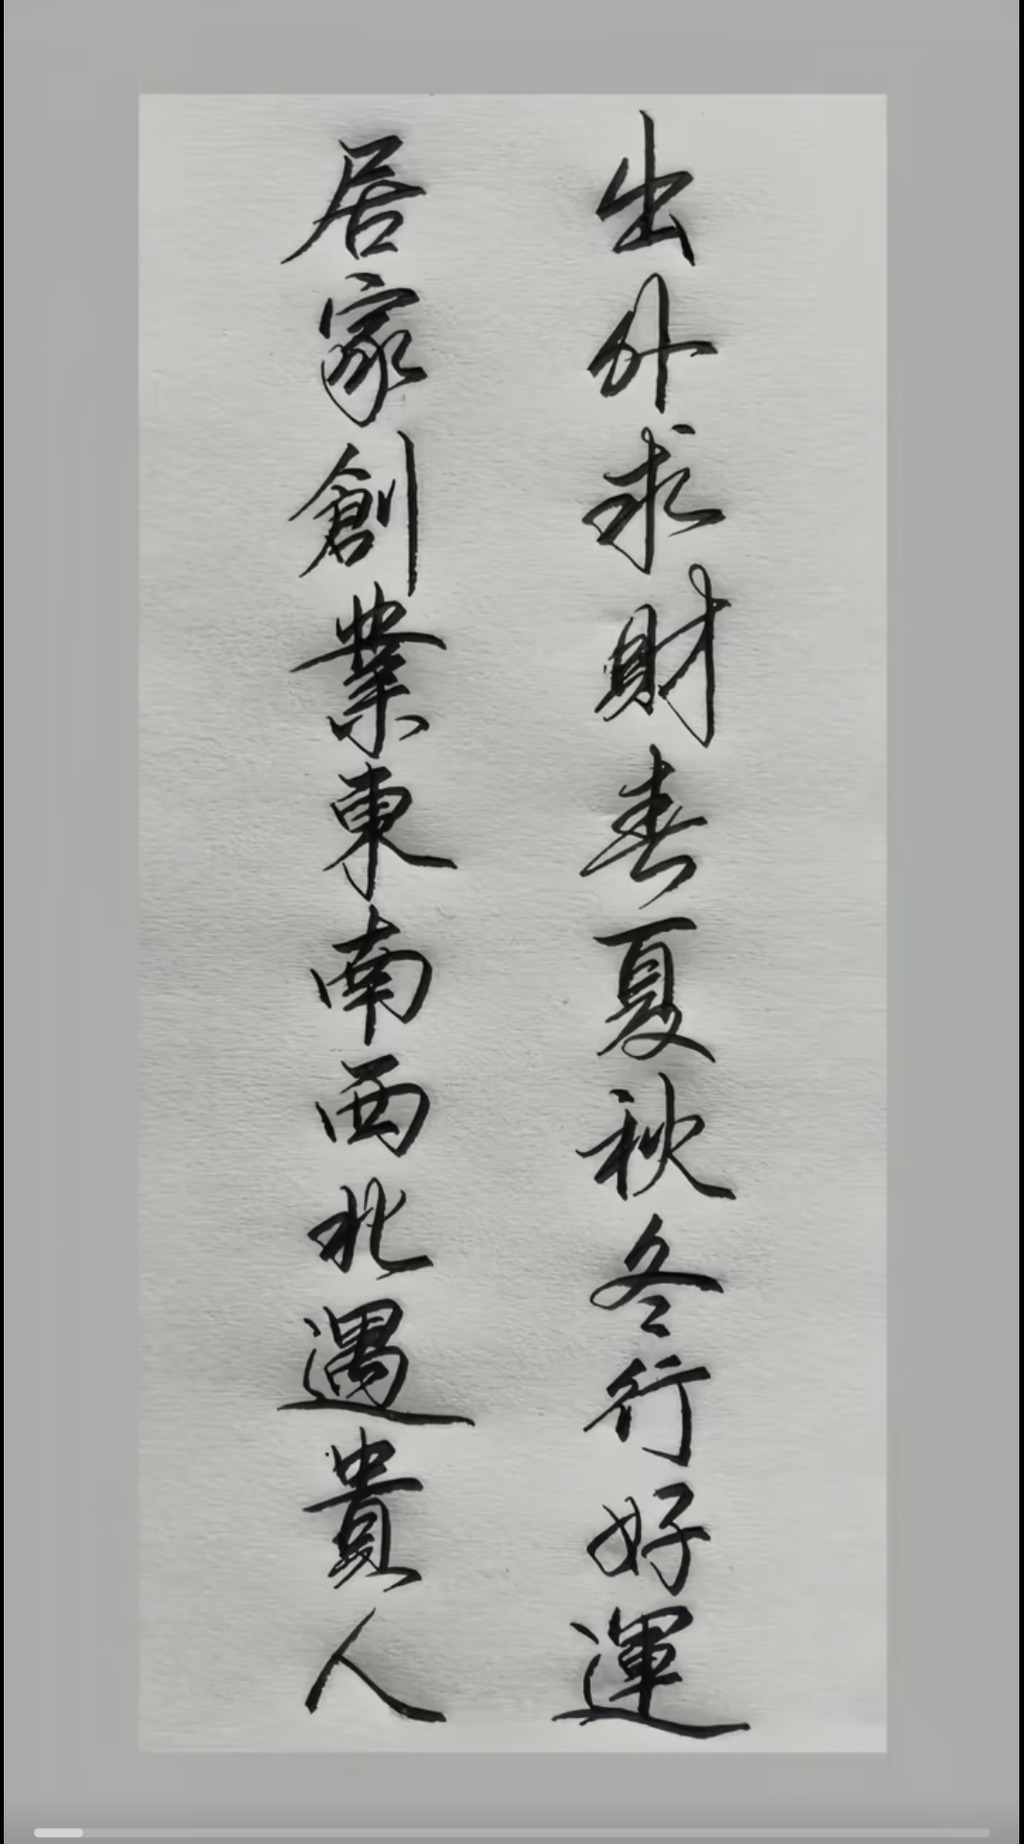 出外求財春夏秋冬行好運
居家創業東南西北遇貴人